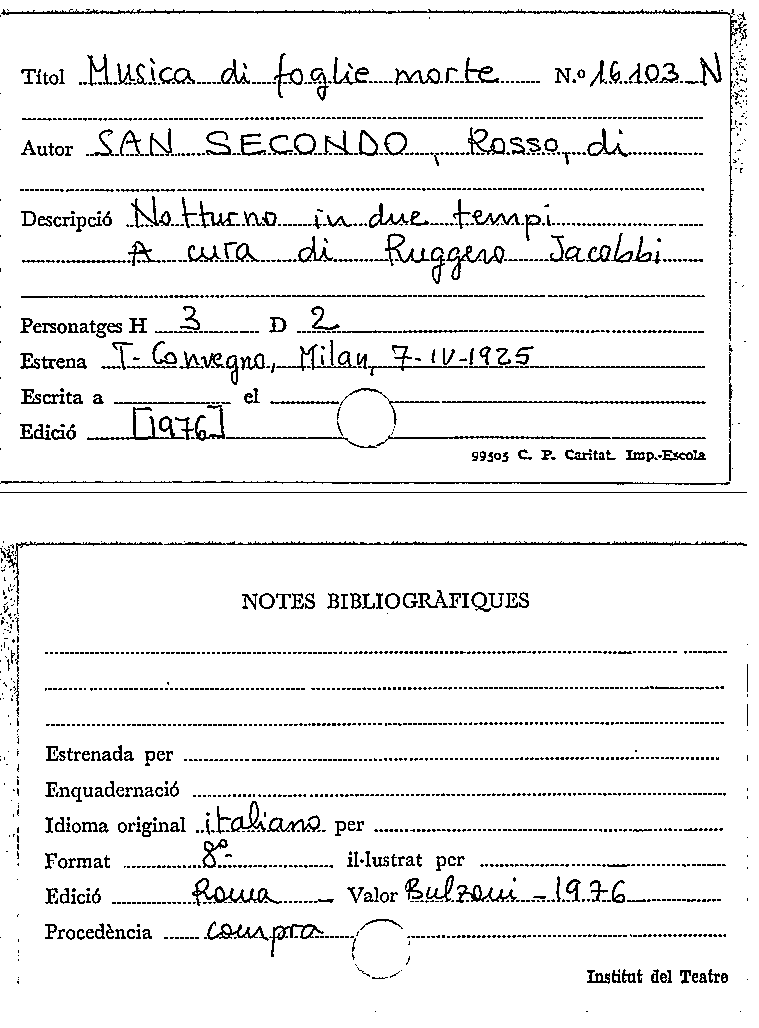 Títol Musica di foglie morte N.º 16.103 N
Autor SAN SECONDO, Rosso, di
Descripció Notturno in due tempi
A cura di Ruggero Jacobbi
Personatges H 3 D 2
Estrena T. Convegno, Milan, 7-IV-1925
Escrita a el
Edició [1976]
99505 C. P. Caritat. Imp.-Escola
NOTES BIBLIOGRÀFIQUES
Estrenada per
Enquadernació
Idioma original italiano per
Format 8º il·lustrat per
Edició Roma Valor Bulzoni - 1976
Procedència compra
Institut del Teatre